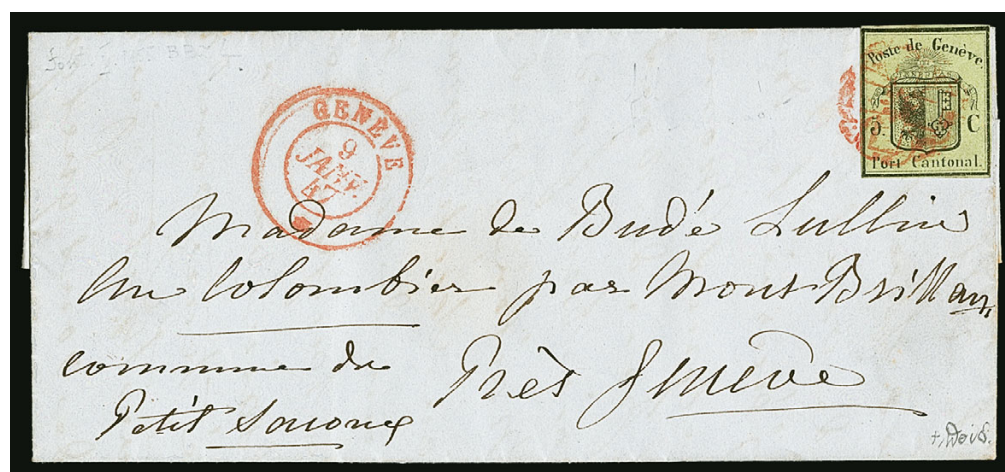 Poste de Genève.
5. C
Port Cantonal.
GENÈVE
9
JANV.
47
Madame de Budé Lullin
Au Colombier par Mont Brillan
commune du
Petit Saconex
Près Genève